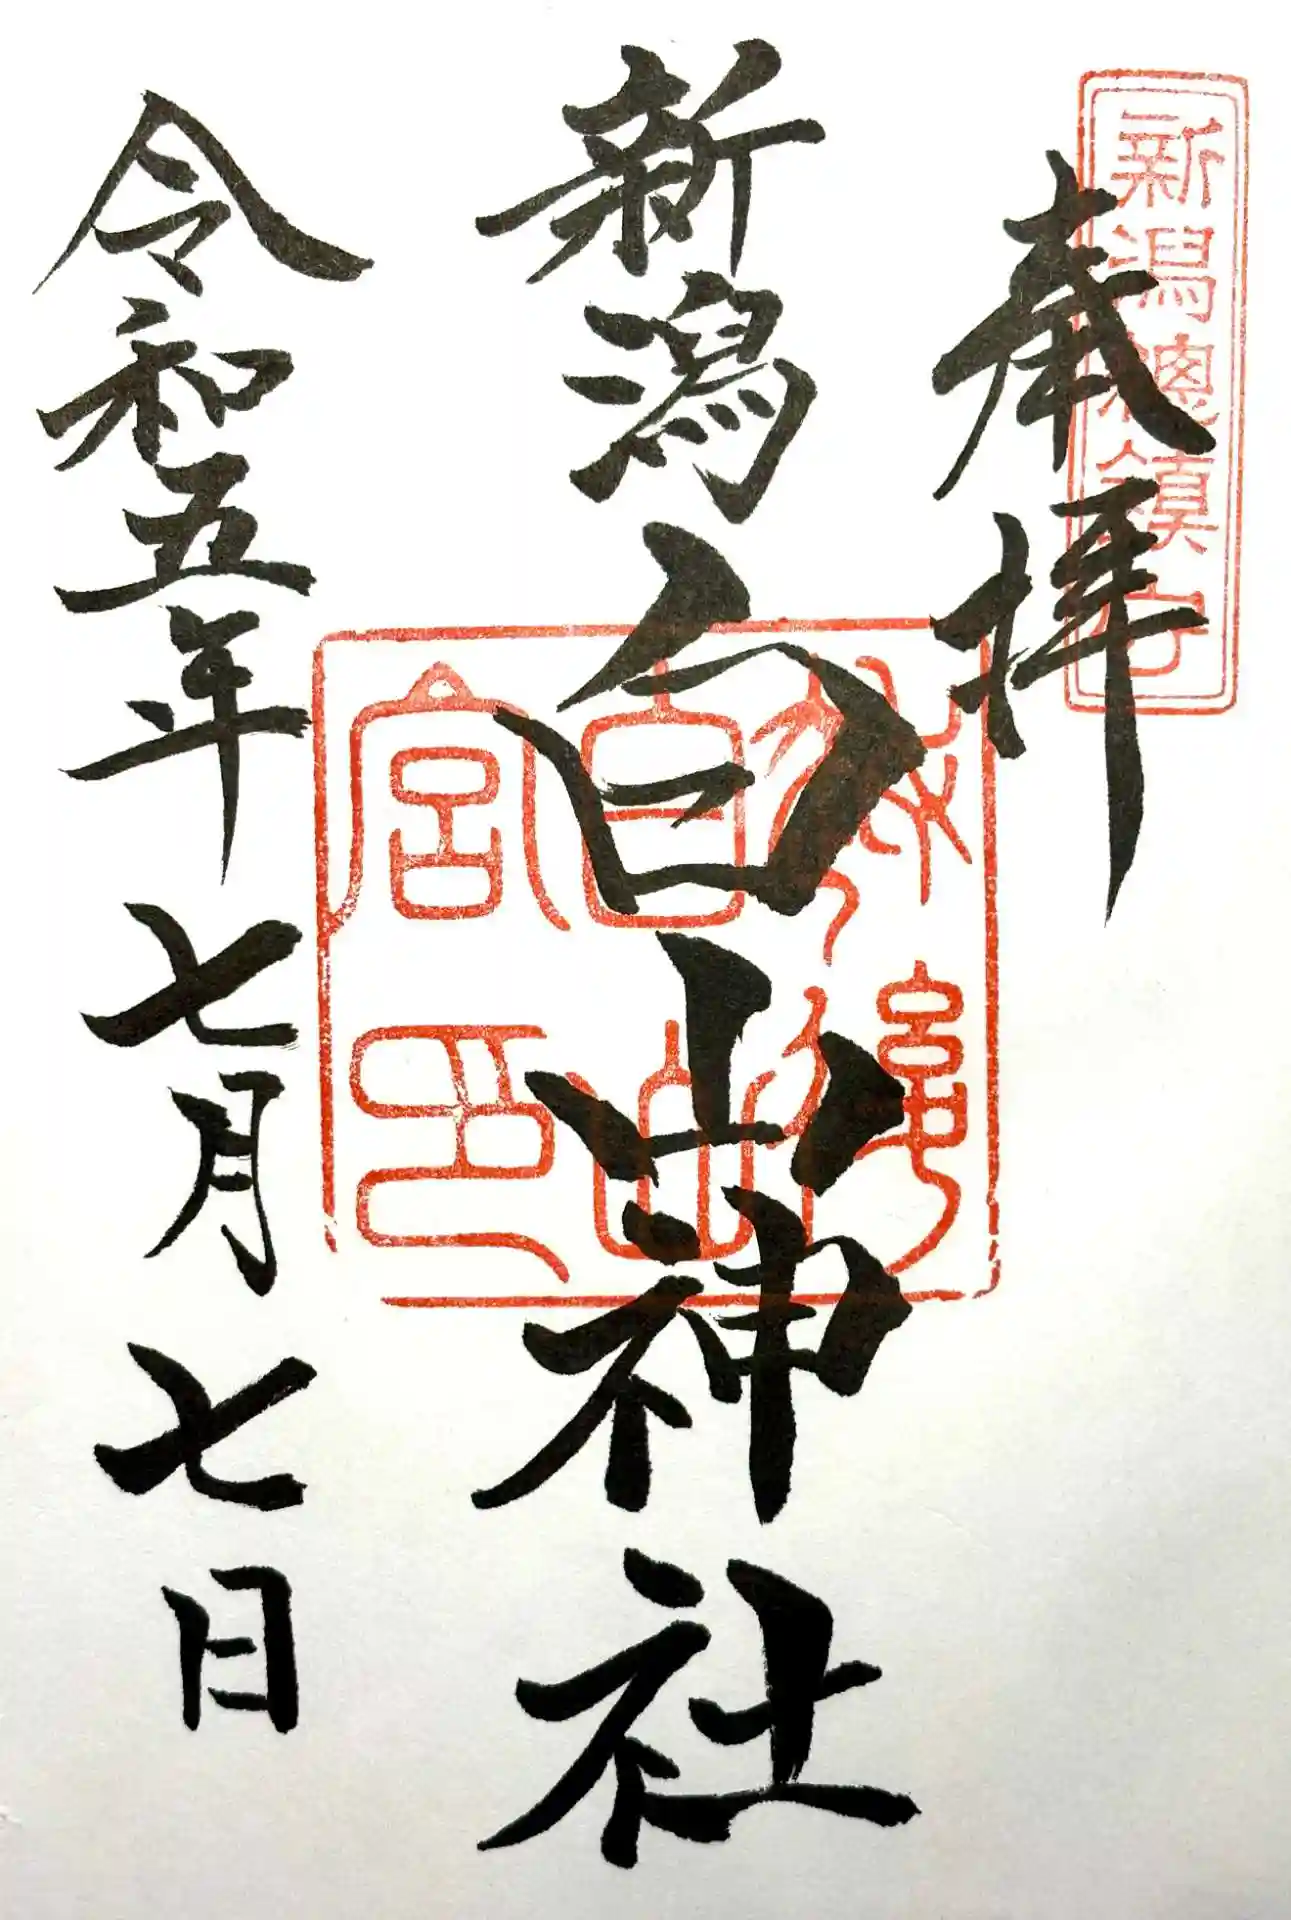 新潟總鎮守
奉拝
新潟白山神社
令和五年七月七日
白山
宮印